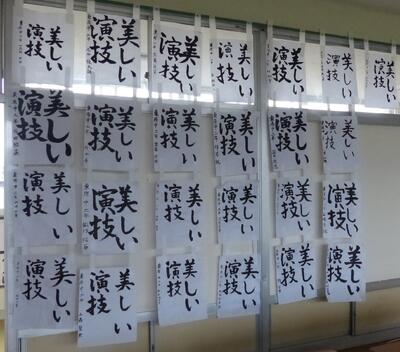 美しい
演技
美しい
演技
美しい
演技
美しい
演技
美しい
演技
美しい
演技
美しい
演技
美しい
演技
美しい
演技
美しい
演技
美しい
演技
美しい
演技
美しい
演技
美しい
演技
美しい
演技
美しい
演技
美しい
演技
美しい
演技
美しい
演技
美しい
演技
美しい
演技
美しい
演技
美しい
演技
美しい
演技
美しい
演技